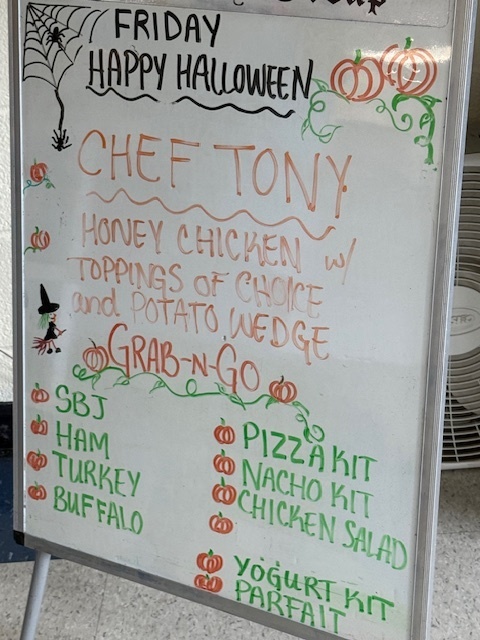 FRIDAY
HAPPY HALLOWEEN
CHEF TONY
HONEY CHICKEN w/
TOPPINGS OF CHOICE
and POTATO WEDGE
GRAB-N-GO
SBJ
HAM
TURKEY
BUFFALO
PIZZA KIT
NACHO KIT
CHICKEN SALAD
YOGURT KIT
PARFAIT